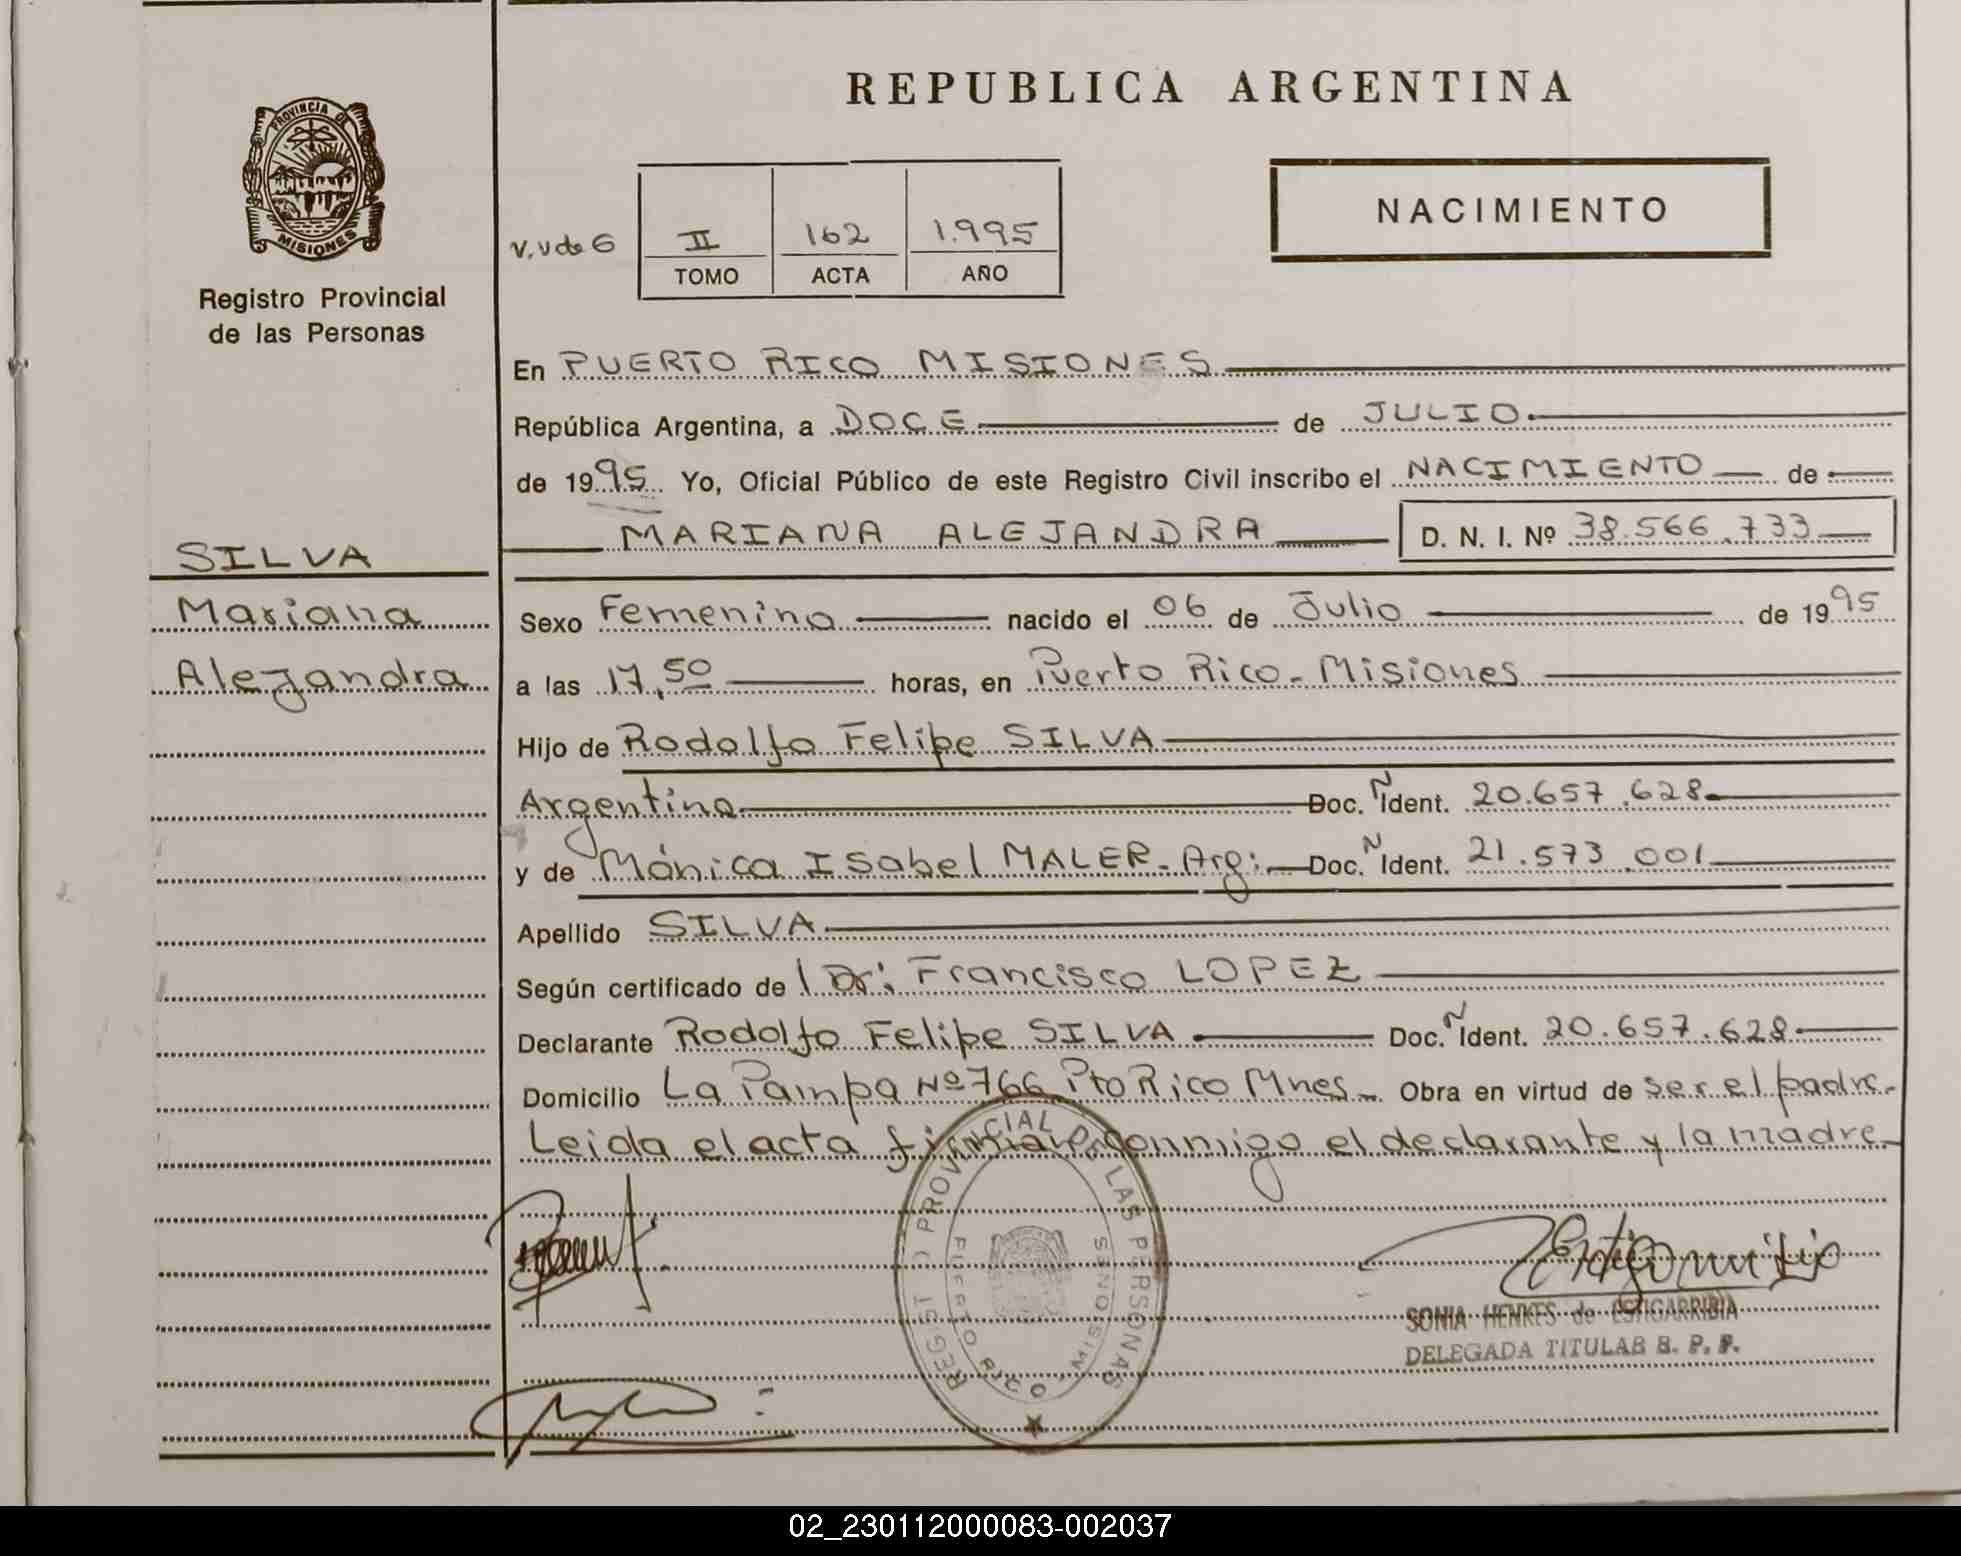 REPUBLICA ARGENTINA
PROVINCIA DE
MISIONES
Registro Provincial
de las Personas
V. Vdo 6
II 162 1.995
TOMO ACTA AÑO
NACIMIENTO
En PUERTO RICO MISIONES
República Argentina, a DOCE de JULIO
de 1995 Yo, Oficial Público de este Registro Civil inscribo el NACIMIENTO de
MARIANA ALEJANDRA D. N. I. Nº 38.566.733
SILVA
Mariana
Alejandra
Sexo Femenino nacido el 06 de Julio de 1995
a las 17,50 horas, en Puerto Rico - Misiones
Hijo de Rodolfo Felipe SILVA
Argentino Doc. N Ident. 20.657.628
y de Mónica Isabel MALER - Arg: Doc. N Ident. 21.573.001
Apellido SILVA
Según certificado de l Dr: Francisco LOPEZ
Declarante Rodolfo Felipe SILVA Doc. N Ident. 20.657.628
Domicilio La Pampa Nº 766 Pto Rico Mnes - Obra en virtud de ser el padre -
Leida el acta firman conmigo el declarante y la madre
REGIST O PROVINCIAL DE LAS PERSONAS
PUERTO RICO MISIONES
SONIA HENKES de ESTIGARRIBIA
DELEGADA TITULAR R. P. P.
02_230112000083-002037